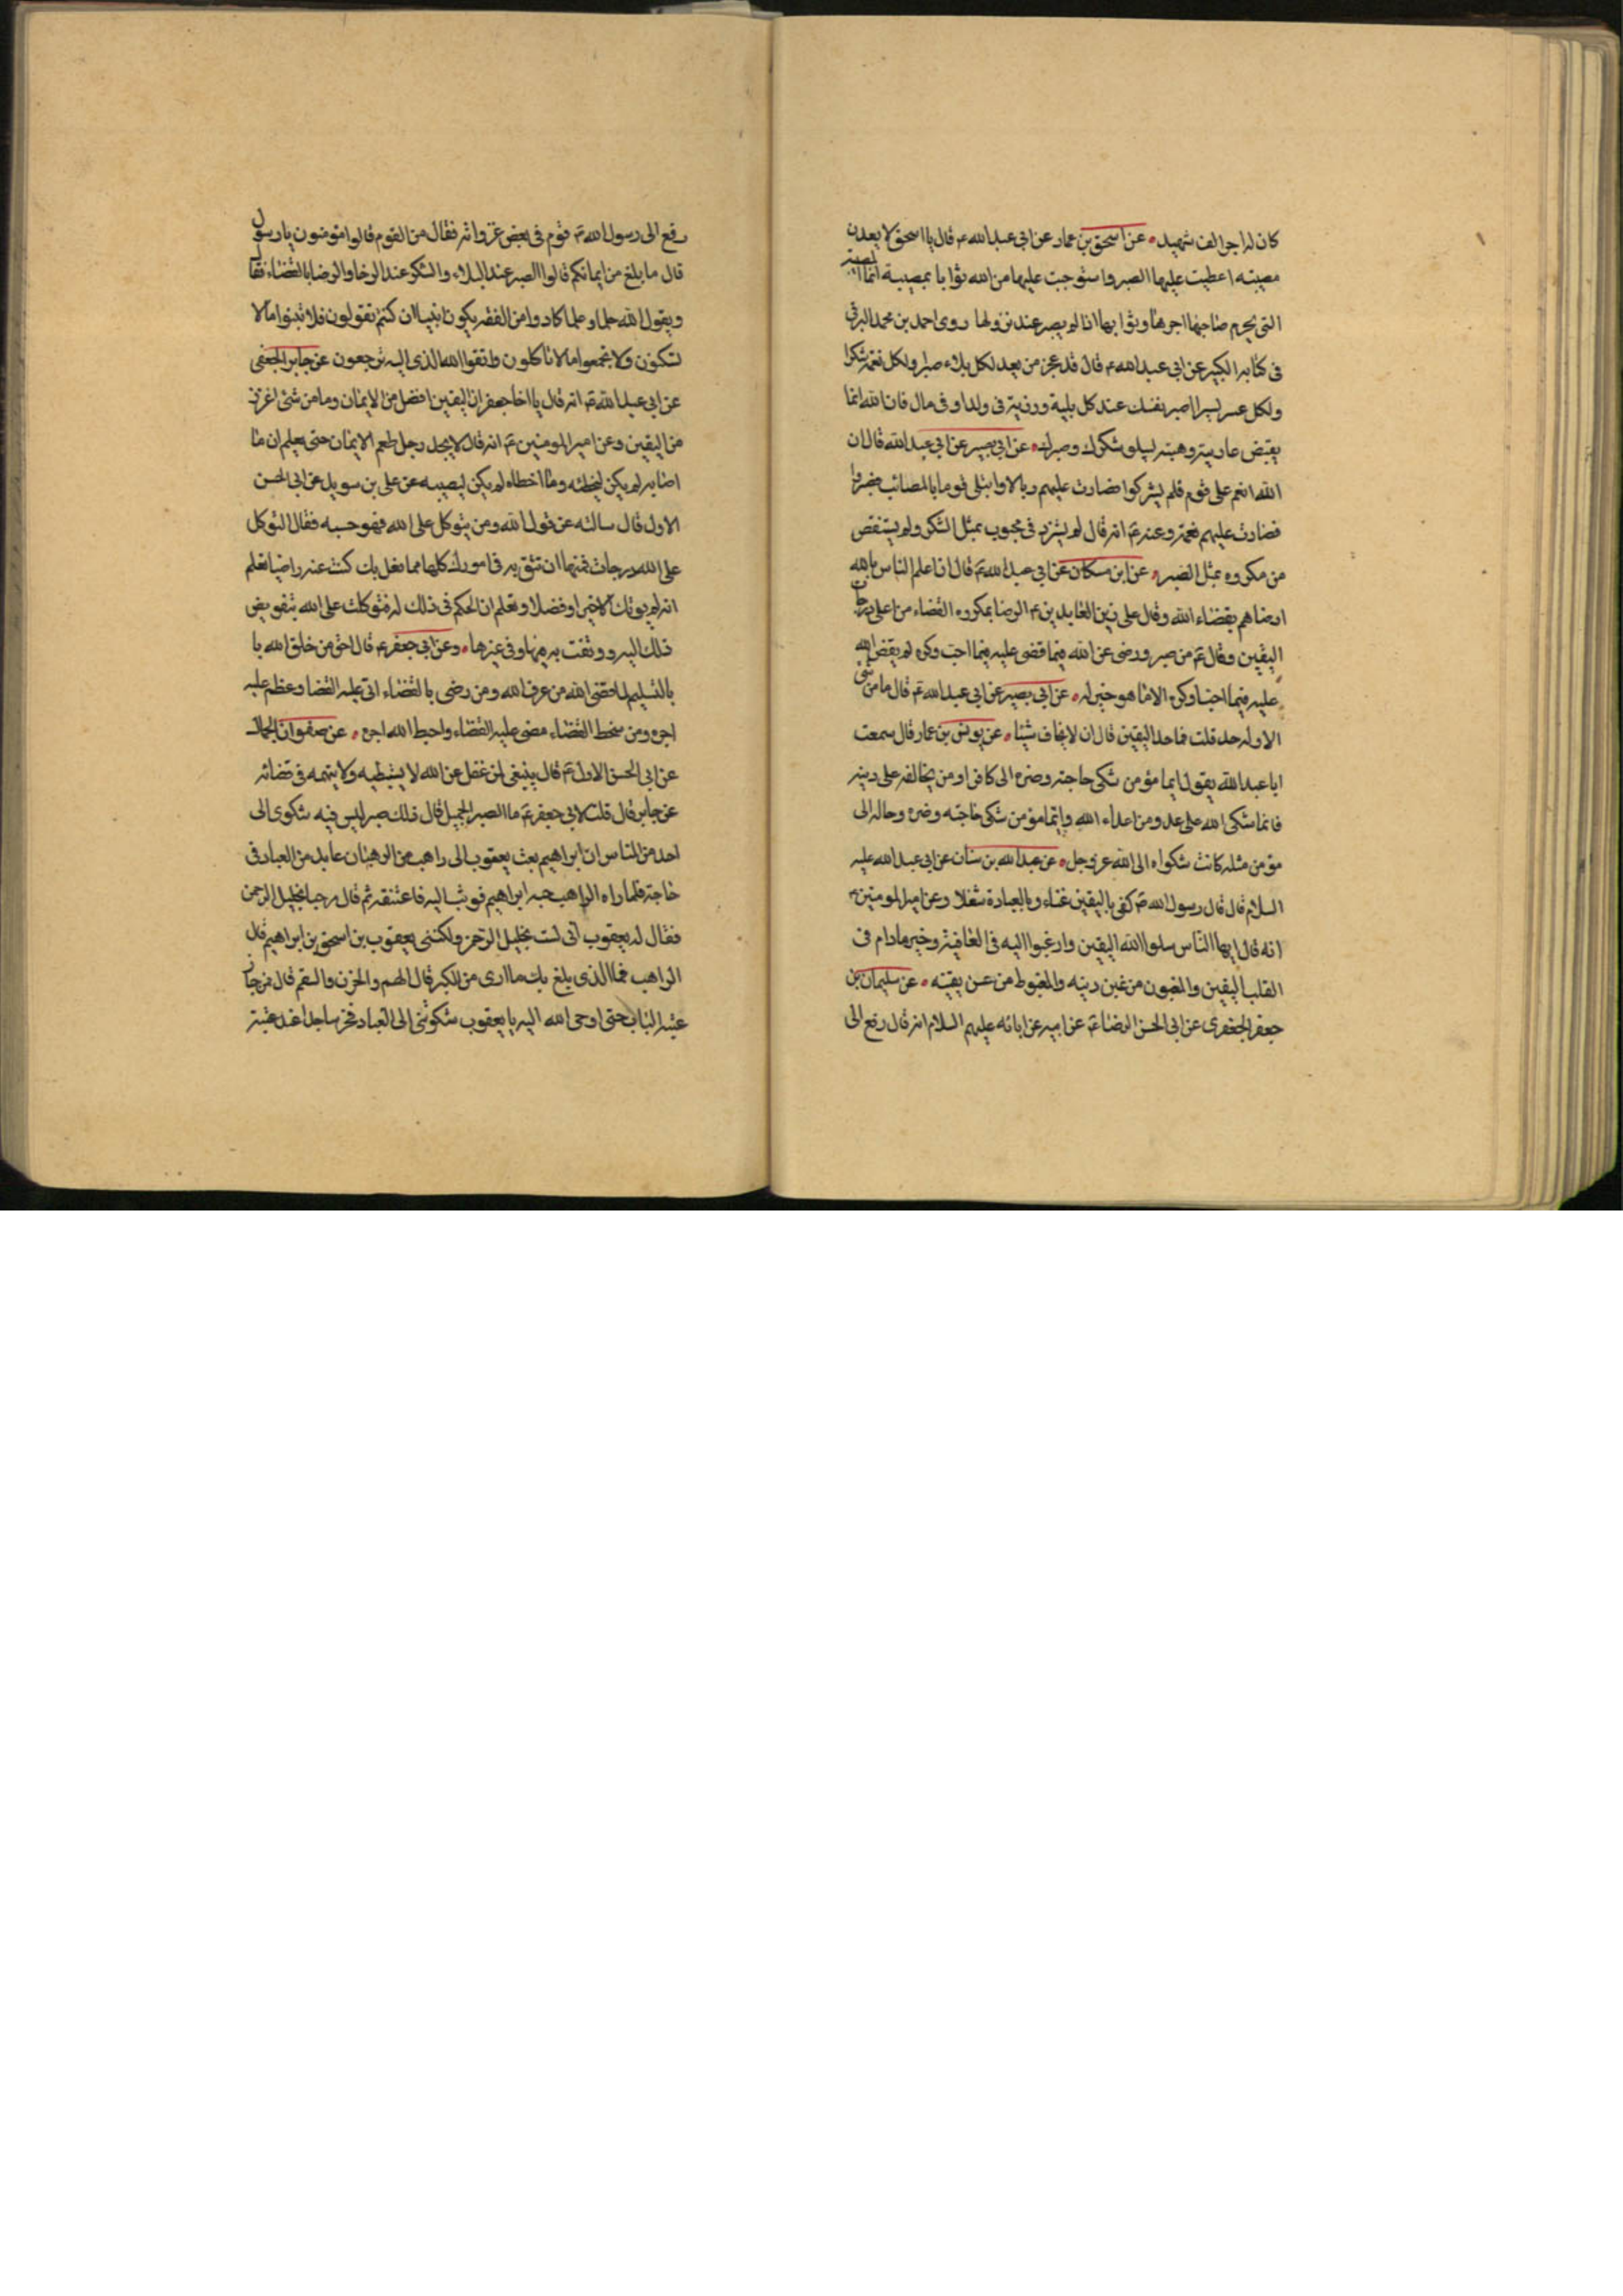 كان له اجر الف شهيد عن اسحق بن عمار عن ابي عبد الله ع قال يا اسحق لا تعدن
مصيبته اعطيت عليها الصبر واستوجبت عليها من الله ثوابا بمصيبة انما المصيبة
التي يحرم صاحبها اجرها وثوابها اذا لم يصبر عند نزولها روى احمد بن محمد البرقي
في كتابه الكبير عن ابي عبد الله ع قال قد عجز من يعد لكل بلاء صبرا ولكل نعمة شكرا
ولكل عسر يسرا اصبر نفسك عند كل بلية ورزية في ولد او في مال فان الله انما
يقبض عاريته وهبته ليبلو شكرك وصبرك عن ابي بصير عن ابي عبد الله قال ان
الله انعم على قوم فلم يشكروا فصارت عليهم وبالا وابتلى قوما بالمصائب فصبروا
فصارت عليهم نعمة وعنه ع انه قال لم يستزد في محبوب بمثل الشكر ولم يستنقص
من مكروه بمثل الصبر عن ابن مسكان عن ابي عبد الله ع قال ان اعلم الناس بالله
ارضاهم بقضاء الله وقال علي زين العابدين ع الرضا بمكروه القضاء من اعلى درجات
اليقين وقال ع من صبر ورضى عن الله فيما قضى عليه فيما احب وكره لم يقض الله
عليه فيما احب او كره الا ما هو خير له عن ابي بصير عن ابي عبد الله ع قال ما من شئ
الا وله حد قلت فما حد اليقين قال ان لا يخاف شيئا عن يونس بن عمار قال سمعت
ابا عبد الله يقول ايما مؤمن شكى حاجته وضره الى كافر او من يخالفه على دينه
فانما شكى الله على عدو من اعداء الله وايما مؤمن شكى حاجته وضره وحاله الى
مؤمن مثله كانت شكواه الى الله عز وجل عن عبد الله بن سنان عن ابي عبد الله عليه
السلام قال قال رسول الله ص كفى باليقين غناء وبالعبادة شغلا وعن امير المومنين ع
انه قال ايها الناس سلوا الله اليقين وارغبوا اليه في العافية وخير ما دام في
القلب اليقين والمغبون من غبن دينه والمغبوط من حسن يقينه عن سليمان بن
جعفر الجعفري عن ابي الحسن الرضا ع عن ابيه عن ابائه عليهم السلام انه قال رفع الى
رفع الى رسول الله ص قوم في بعض غزواته فقال من القوم قالوا مؤمنون يا رسول
قال ما بلغ من ايمانكم قالوا الصبر عند البلاء والشكر عند الرخا والرضا بالقضاء فقال
ويقول الله حلماء علما كادوا من الفقه يكون انبيا ان كنتم تقولون فلا تبنوا ما لا
تسكنون ولا تجمعوا ما لا تاكلون واتقوا الله الذي اليه ترجعون عن جابر الجعفي
عن ابي عبد الله ع انه قال يا اخا جعفر ان اليقين افضل من الايمان وما من شئ اعز
من اليقين وعن امير المومنين ع انه قال لا يجد رجل طعم الايمان حتى يعلم ان ما
اصابه لم يكن ليخطئه وما اخطاه لم يكن ليصيبه عن علي بن سويد عن ابي الحسن
الاول قال سالته عن قول الله ومن يتوكل على الله فهو حسبه فقال التوكل
على الله درجات فمنها ان تثق به في امورك كلها مما فعل بك كنت عنه راضيا تعلم
انه لم يوتك الا خيرا وفضلا وتعلم ان الحكم في ذلك له فتوكلت على الله بتفويض
ذلك اليه ووثقت به فيها وفي غيرها وعن ابي جعفر ع قال احق من خلق الله با
بالتسليم لما قضى الله من عرف الله ومن رضى بالقضاء اتى عليه القضا وعظم عليه
اجره ومن سخط القضاء مضى عليه القضاء واحبط الله اجره عن صفوان الجمال
عن ابي الحسن الاول ع قال ينبغي لمن غفل عن الله لا يستبطيه ولا يتهمه في قضائه
عن جابر قال قلت لابي جعفر ع ما الصبر الجميل قال ذلك صبر ليس فيه شكوى الى
احد من الناس ان ابراهيم بعث يعقوب الى راهب من الرهبان عابد من العباد في
حاجة فلما راه الراهب حسبه ابراهيم فوثب اليه فاعتنقه ثم قال مرحبا بخليل الرحمن
فقال له يعقوب اني لست بخليل الرحمن ولكنني يعقوب بن اسحق بن ابراهيم قال
الراهب فما الذي بلغ بك ما ارى من الكبر قال الهم والحزن والسقم قال فما جاز
عتبة الباب حتى اوحى الله اليه يا يعقوب شكوتني الى العباد فخر ساجدا عند عتبة